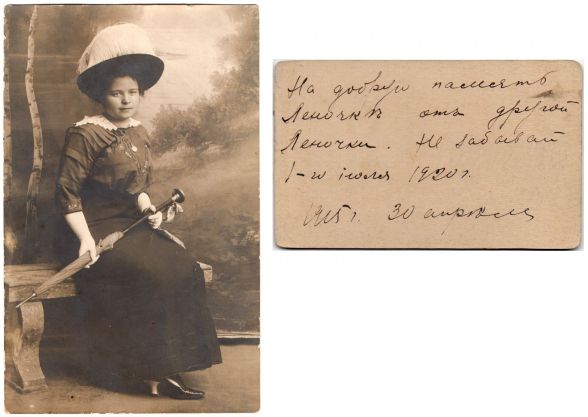 На добрую память
Леночкѣ отъ другой
Леночки. Не забывай
1-го iюля 1920 г.
1915 г. 30 апрѣля